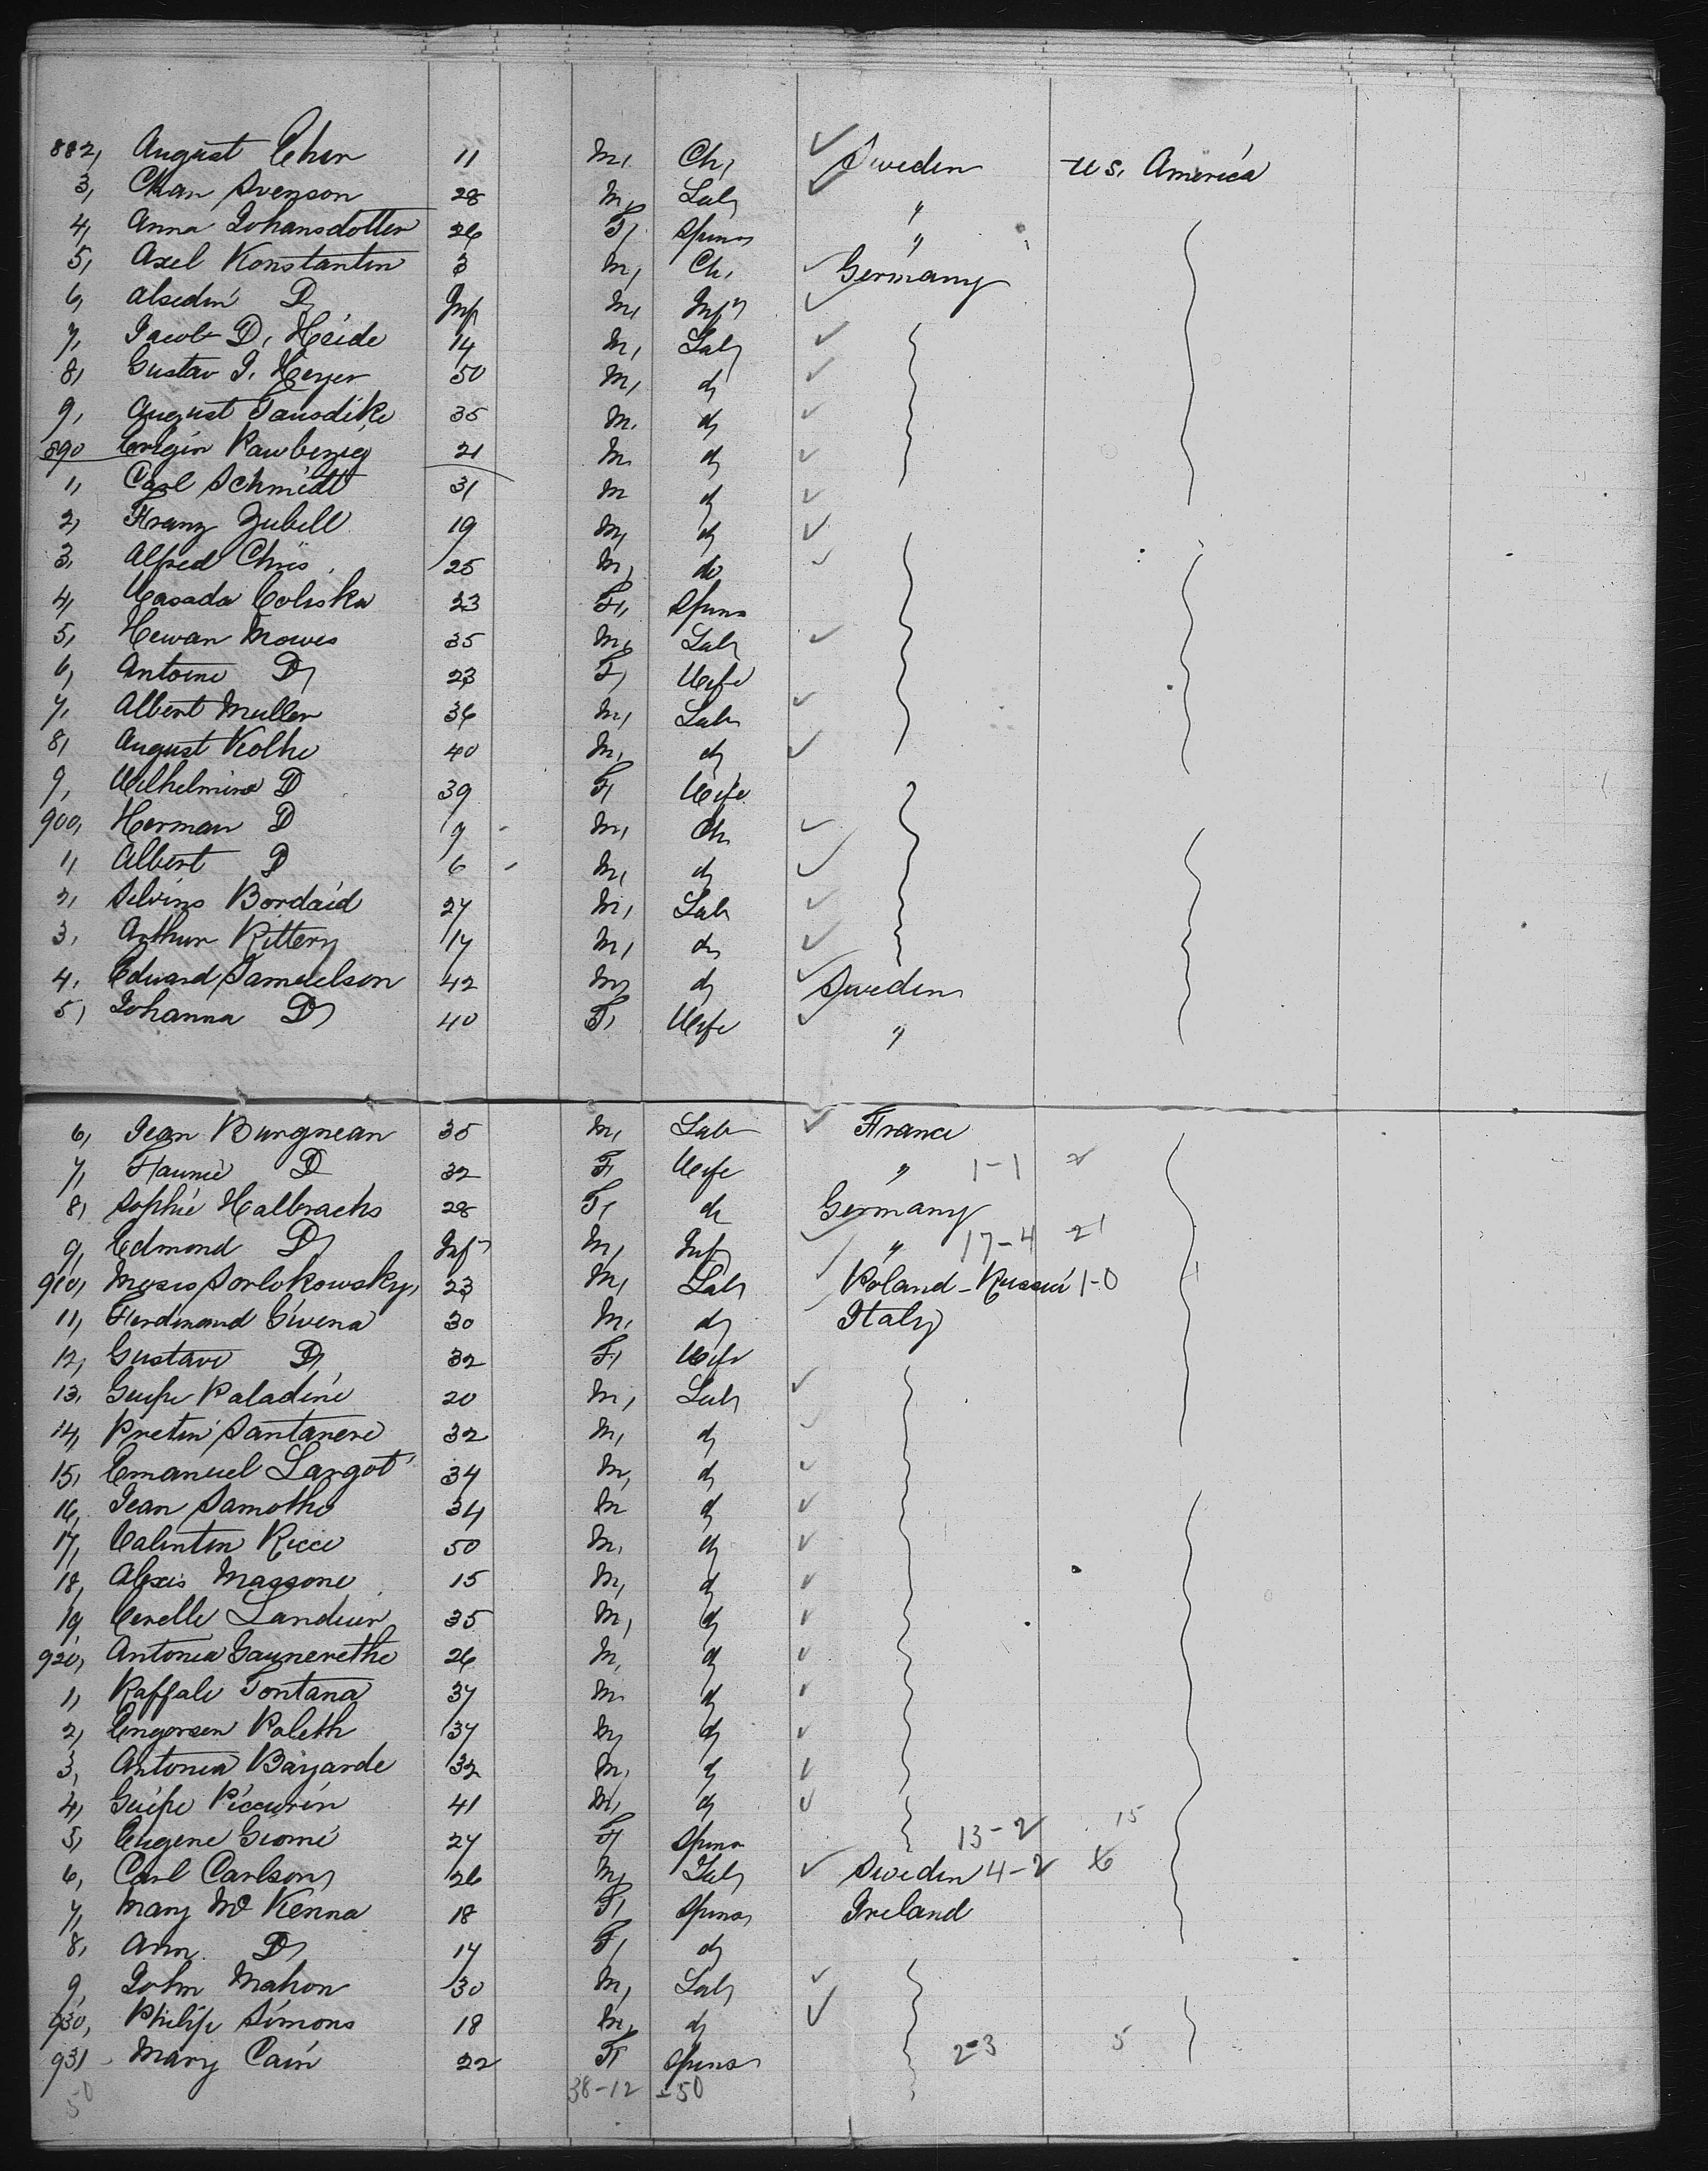 882, August Ehrn 11 M, Ch, Sweden U.S. America
3, Chan Svenson 28 M, Lab, "
4, Anna Johansdotter 26 F, Spins "
5, Axel Konstantin 3 M, Ch, Germany
6, Alsedin D, Inf M, Inf
7, Jacob D, Heide 14 M, Lab,
8, Gustav J. Heyer 50 M, d,
9, August Tansdike 35 M. d,
890 21 M. d,
1, Carl Schmidt 31 M d,
2, Franz Zubell 19 M, d,
3, Alfred Chris 25 M, do
4, Casada Coliska 23 F, Spins
5, Hewan Mowes 35 M, Lab,
6, Antoine D, 23 F, Wife
7, Albert Muller 36 M, Lab,
8, August Kolhe 40 M, d,
9, Wilhelmine D 39 F, Wife
900, Herman D 9 M, Ch,
1, Albert D 6 M, d,
2, Silvins Bordaid 27 M, Lab
3, Arthur Rittery 17 M, d,
4, Eduard Samuelson 42 M, d, Sweden
5, Johanna D, 40 F, Wife "
6, Jean Burgnean 35 M, Lab France
7, Faunie D 32 F, Wife " 1-1 2
8, Sophie Halbrachs 28 F, d, Germany
9, Edmond D, Inf M, Inf " 17-4 21
910, Moses Sorlokowsky, 23 M, Lab, Poland-Russia 1-0
11, Ferdinand Givena 30 M, d, Italy
12, Gustave D, 32 F, Wife
13, Guipe Paladini 20 M, Lab,
14, Pretin Santanere 32 M, d,
15, Emanuel Largot 34 M, d,
16, Jean Samothe 34 M d,
17, Valentin Ricci 50 M, d,
18, Alexis Massone 15 M, d,
19, Cerelle Landeur 35 M, d,
920, Antonia Gaunerethe 26 M, d,
1, Raffale Fontana 37 M. d,
2, Engorsen Poleth 37 M, d,
3, Antonia Bayarde 32 M, d,
4, Guipe Piccurin 41 M, d,
5, Eugene Giomi 27 F, Spins 13-2 15
6, Carl Carlson, 26 M, Lab, Sweden 4-2 6
7, Mary McKenna 18 F, Spins, Ireland
8, Ann D, 17 F, d,
9, John Mahon 30 M, Lab,
930, Philip Simons 18 M, d,
931 Mary Cain 22 F, Spins 2-3 5
50 38-12 =50